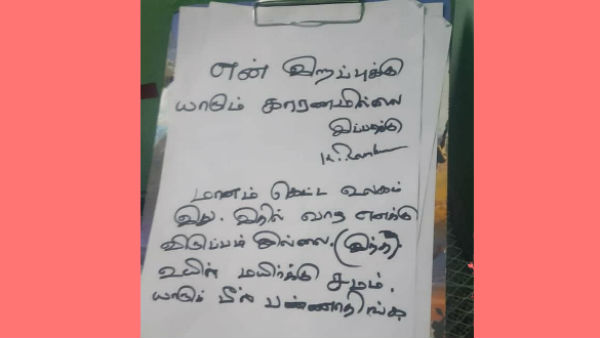 என் இறப்புக்கு
யாரும் காரணமில்லை
இப்படிக்கு
மானம் கெட்ட உலகம்
இது. இதில் வாழ எனக்கு
விருப்பம் இல்லை. (இந்த)
உயிர் மயிர்க்கு சமம்.
யாரும் பீல் பண்ணாதிங்க